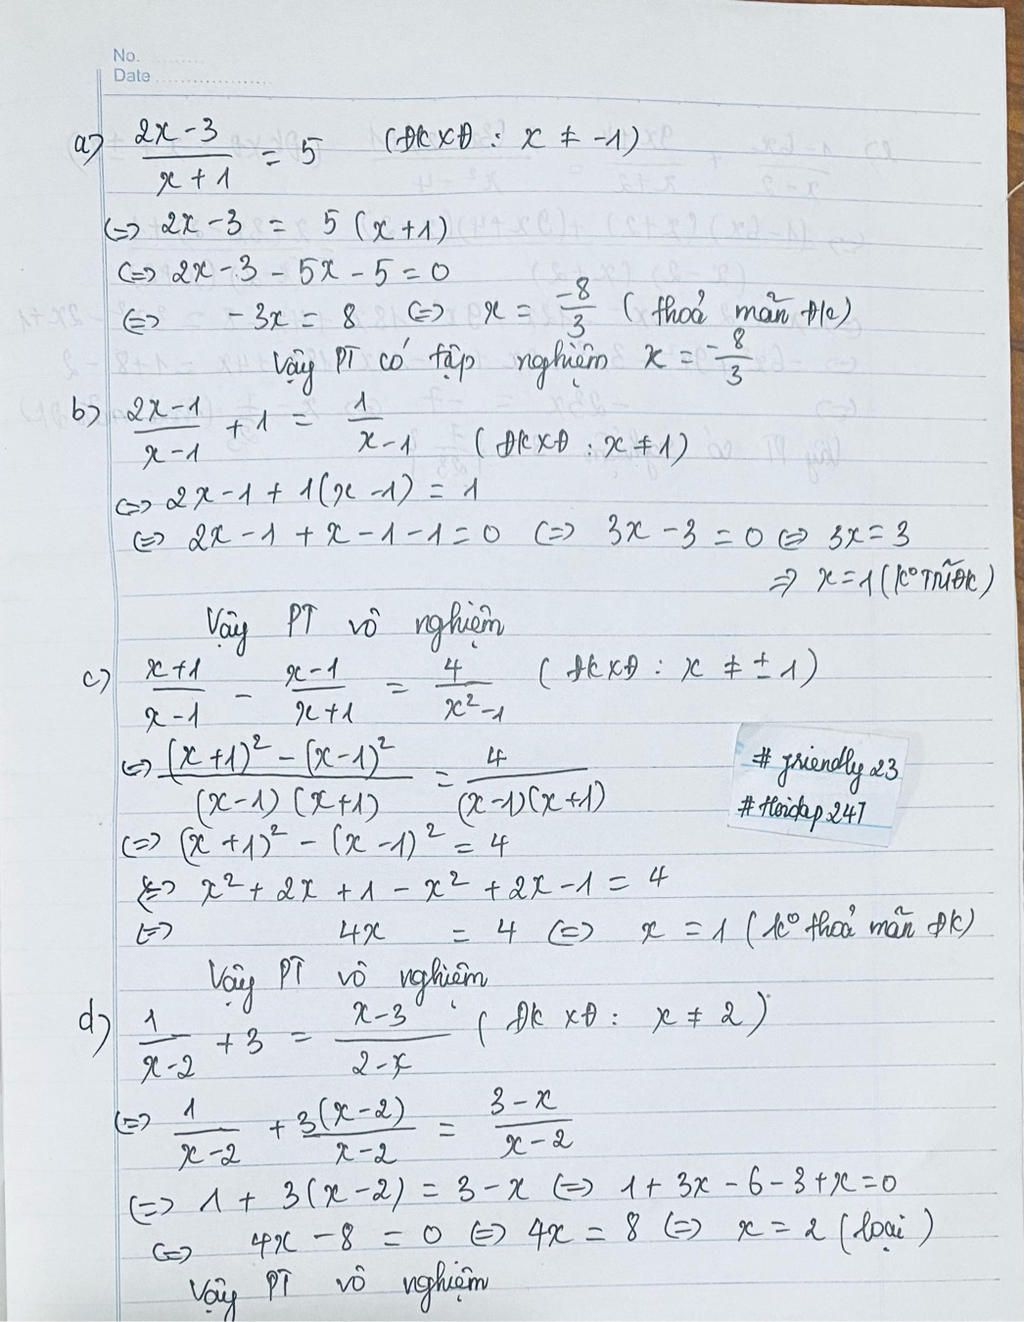 No.
Date
a) (2x-3)/(x+1) = 5 (ĐKXĐ : x ≠ -1)
<=> 2x-3 = 5 (x+1)
<=> 2x-3 - 5x - 5 = 0
<=> - 3x = 8 <=> x = -8/3 (thoả mãn ĐK)
Vậy PT có tập nghiệm x = -8/3
b) (2x-1)/(x-1) + 1 = 1/(x-1) (ĐKXĐ : x ≠ 1)
<=> 2x-1 + 1(x-1) = 1
<=> 2x-1 + x-1-1 = 0 <=> 3x-3 = 0 <=> 3x = 3
=> x = 1 (K° TMĐK)
Vậy PT vô nghiệm
c) (x+1)/(x-1) - (x-1)/(x+1) = 4/(x²-1) (ĐKXĐ : x ≠ ± 1)
<=> ((x+1)² - (x-1)²)/((x-1)(x+1)) = 4/((x-1)(x+1))
# friendly23
#Hoidap247
<=> (x+1)² - (x-1)² = 4
<=> x² + 2x + 1 - x² + 2x - 1 = 4
<=> 4x = 4 <=> x = 1 (k° thoả mãn ĐK)
Vậy PT vô nghiệm
d) 1/(x-2) + 3 = (x-3)/(2-x) (ĐKXĐ : x ≠ 2)
<=> 1/(x-2) + 3(x-2)/(x-2) = (3-x)/(x-2)
<=> 1 + 3(x-2) = 3-x <=> 1+3x-6-3+x=0
<=> 4x-8 = 0 <=> 4x = 8 <=> x = 2 (loại)
Vậy PT vô nghiệm